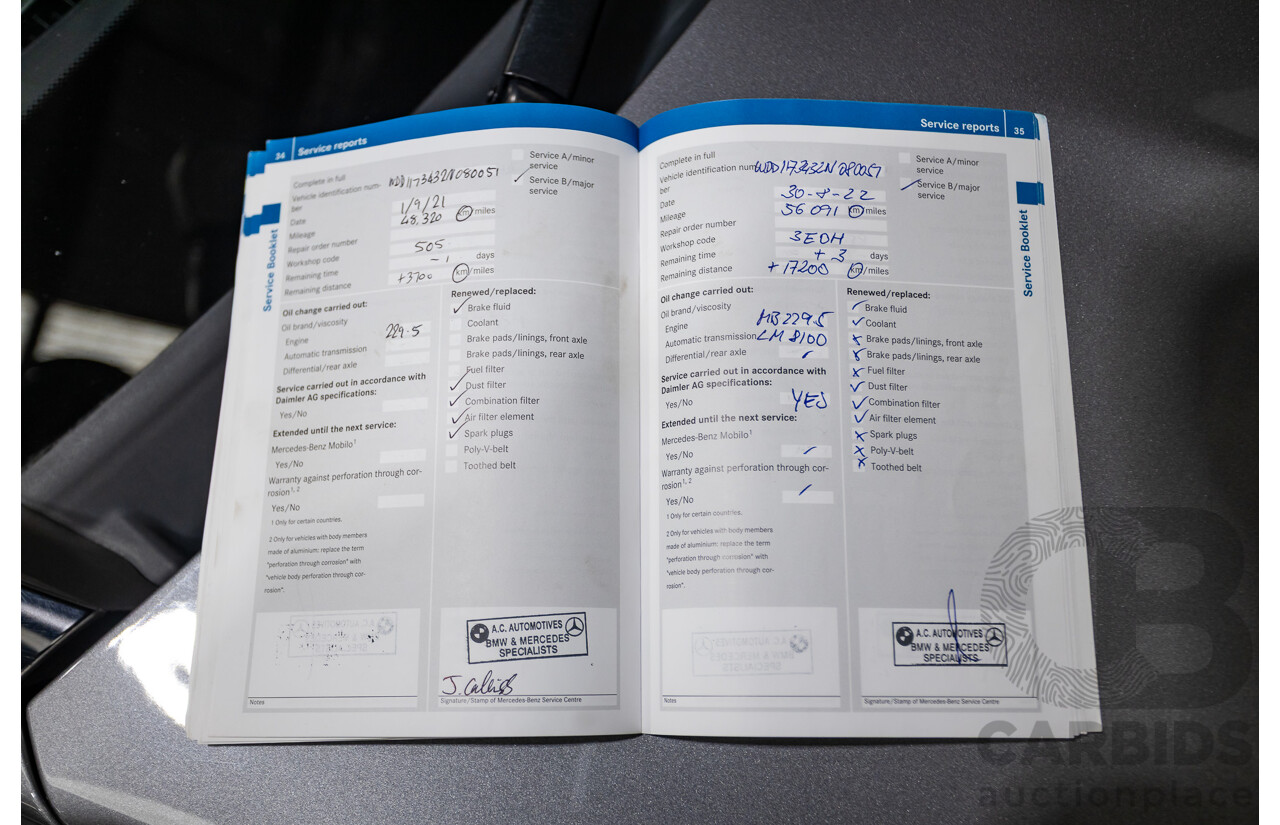 34 Service reports
Service Booklet
Complete in full
Vehicle identification num-
ber WDD1173432N080051
Date 1/9/21
Mileage 48,320 km/miles
Repair order number
Workshop code 505
Remaining time -1 days
Remaining distance +3700 km/miles
Service A/minor
service
Service B/major
service
Oil change carried out:
Oil brand/viscosity
Engine 229.5
Automatic transmission
Differential/rear axle
Service carried out in accordance with
Daimler AG specifications:
Yes/No
Extended until the next service:
Mercedes-Benz Mobilo1
Yes/No
Warranty against perforation through cor-
rosion1, 2
Yes/No
1 Only for certain countries.
2 Only for vehicles with body members
made of aluminium: replace the term
"perforation through corrosion" with
"vehicle body perforation through cor-
rosion".
Renewed/replaced:
Brake fluid
Coolant
Brake pads/linings, front axle
Brake pads/linings, rear axle
Fuel filter
Dust filter
Combination filter
Air filter element
Spark plugs
Poly-V-belt
Toothed belt
A.C. AUTOMOTIVES
BMW & MERCEDES
SPECIALISTS
Notes
Signature/Stamp of Mercedes-Benz Service Centre
Service reports 35
Service Booklet
Complete in full
Vehicle identification num-
ber WDD1173432N080051
Date 30-8-22
Mileage 56091 km/miles
Repair order number
Workshop code 3EDH
Remaining time +3 days
Remaining distance +17200 km/miles
Service A/minor
service
Service B/major
service
Oil change carried out:
Oil brand/viscosity
Engine MB 229.5
Automatic transmission LM 8100
Differential/rear axle
Service carried out in accordance with
Daimler AG specifications:
Yes/No YES
Extended until the next service:
Mercedes-Benz Mobilo1
Yes/No
Warranty against perforation through cor-
rosion1, 2
Yes/No
1 Only for certain countries.
2 Only for vehicles with body members
made of aluminium: replace the term
"perforation through corrosion" with
"vehicle body perforation through cor-
rosion".
Renewed/replaced:
Brake fluid
Coolant
Brake pads/linings, front axle
Brake pads/linings, rear axle
Fuel filter
Dust filter
Combination filter
Air filter element
Spark plugs
Poly-V-belt
Toothed belt
A.C. AUTOMOTIVES
BMW & MERCEDES
SPECIALISTS
Notes
Signature/Stamp of Mercedes-Benz Service Centre
CB
CARBIDS
auctionplace